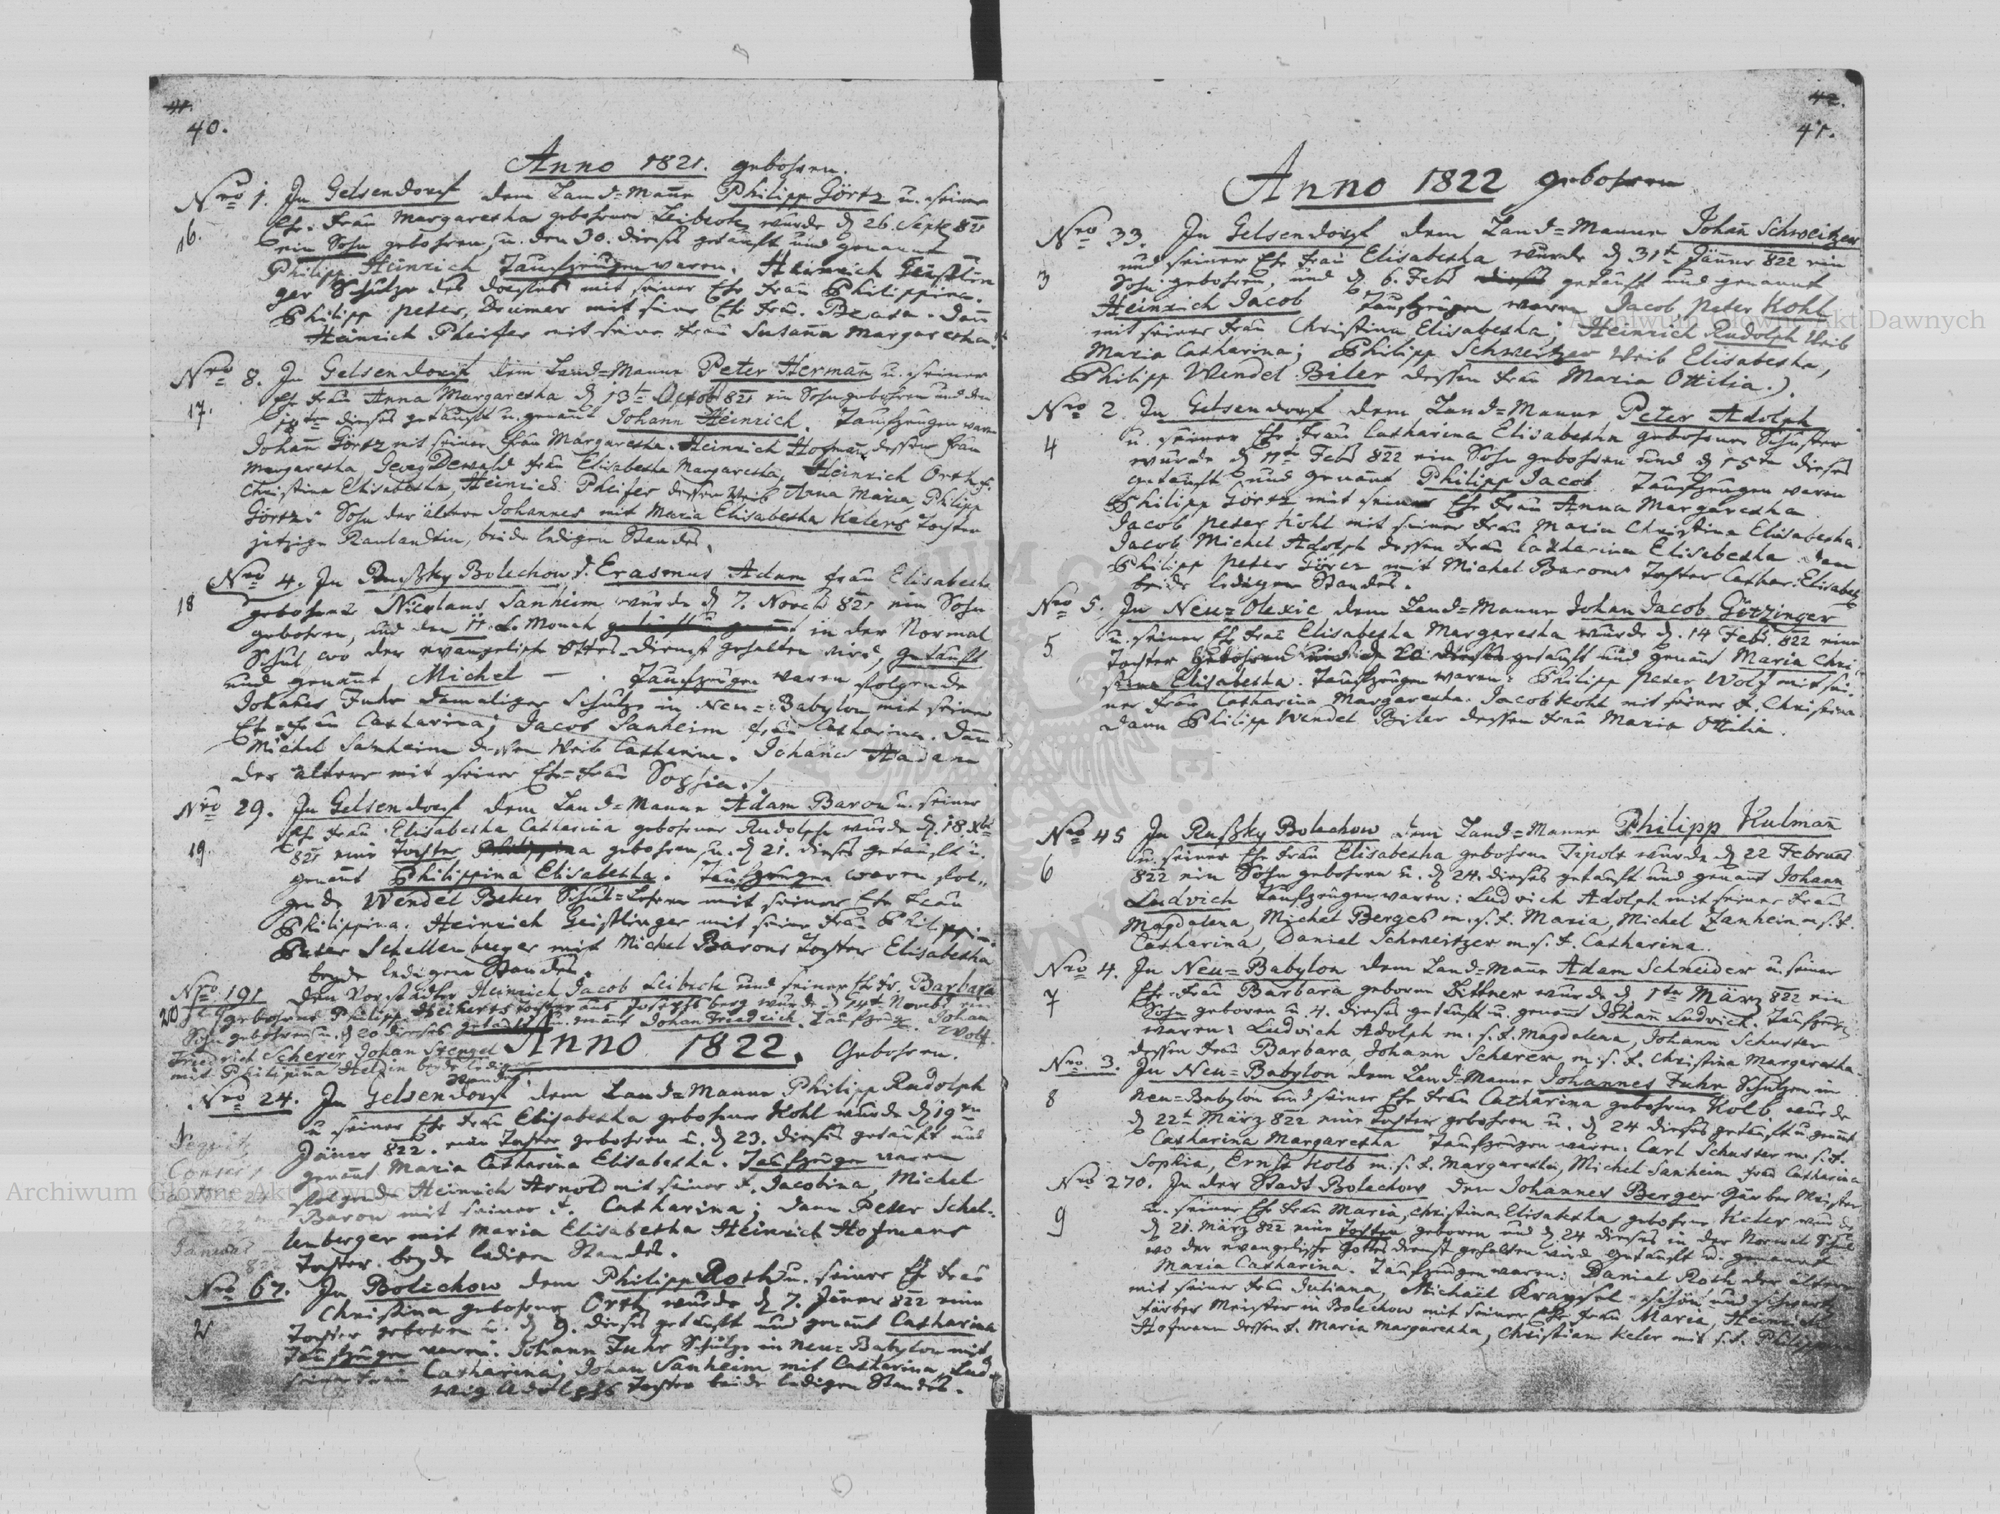 41.
40.
Anno 1821. gebohren.
Nro 1. In Gelsendorf dem Land=Mann Philipp Görtz u. seiner
16. Ehe-Frau Margaretha gebohrne Leibrok wurde d 26. Sept 821
ein Sohn gebohren, u. den 30. dieses getauft und genannt
Philipp Heinrich Taufzeugen waren. Heinrich
ger Schulze des mit seiner Ehe Frau Philippina.
Philipp Peter, Drumer mit seine Ehe Frau. Beata. Dann
Heinrich Pheifer mit seine Frau Susanna Margaretha.
Nro 8. In Gelsendorf dem Land=Manne Peter Herman u. seiner
17. Ehe Frau Anna Margaretha d 13te Octob 821 ein Sohn gebohren und den
dieses getauft u. genannt Johann Heinrich. Taufzeugen waren
Johann Görtz mit seiner Frau Margaretha. Heinrich Hofman dessen Frau
Margaretha, Georg Dewald Frau Elisabetha Margaretha, Heinrich Orth f.
Christina Elisabetha, Heinrich Pheifer dessen Weib Anna Maria, Philipp
Görtz Sohn der ältere Johannes mit Maria Elisabetha Kelers Tochter
jetzige beide ledigen Standes.
Nro 4. In Rußky Bolechow d. Erasmus Adam Frau Elisabetha
18 gebohrne Nicolaus Sanheim wurde d 7. Novb 821 ein Sohn
gebohren, und den 11. d. Monath getauft u genannt in der Normal
Schul, wo der evangelisch Gottes-Dienst gehalten wird, getauft
und genannt, Michel — . Taufzeugen waren folgende
Johanes Fuhr damaliger Schulze in Neu=Babylon mit seiner
Ehe Frau Catharina; Jacob Sanheim Frau Catharina. Dann
Michel Sanheim dessen Weib Catharina. Johanes Aadam
der ältere mit seiner Ehe=Frau Sophia.
Nro 29. In Gelsendorf dem Land=Manne Adam Baron u. seiner
19. Ehe Frau Elisabetha Catharina gebohrne Rudolph wurde d. 18 Xbr
821 eine Tochter Philippina gebohren, u. d 21. dieses getauft u.
genannt Philippina Elisabetha. Taufzeugen waren fol=
gende Wendel Beker Schul=Lehrer mit seiner Ehe Frau
Philippina. Heinrich Geißlinger mit seine Frau Philippina
Peter Schellenberger mit Michel Barons Tochter Elisabetha
beyde ledigen Standes.
Nro 191 Den Vorstädter Heinrich Jacob Leibrok und seiner Eh Fr. Barbara
20 gebohrne Philipp Tochter aus Josephsberg wurde d 14t Novebr ein
Sohn gebohren u. d 20 dieses getauft u. genannt Johan Friedrich. Taufzeug. Johan Wolf
Friedrich Scherer, Johan Stengel
mit Philipina Heldin beyde ledigen
Standes.
Anno 1822. Gebohren.
Nro 24. In Gelsendorf dem Land=Manne Philipp Rudolph
u seiner Ehe Frau Elisabetha gebohrne Kohl wurde d 19ten
Jäner 822. eine Tochter gebohren u. d 23. dieses getauft und
genannt Maria Catharina Elisabetha. Taufzeugen waren
folgende Heinrich Arnold mit seiner F. Jacobina, Michel
Baron mit seiner F. Catharina; dann Peter Schel=
lenberger mit Maria Elisabetha Heinrich Hofmans
Tochter. beyde ledigen Standes.
Nro 67. In Bolechow dem Philipp Roth u. seiner Ehe Frau
2 Christina gebohrne Orth wurde d 7. Jäner 822 eine
Tochter gebohren u. d 9. dieses getauft und genannt Catharina
Taufzeugen waren: Johann Fuhr Schulze in Neu=Babylon mit
seiner Frau Catharina, Johan Sanheim mit Catharina, Lud=
wig Adolphs Tochter beide ledigen Standes.
42.
41.
Anno 1822 gebohren
Nro 33. In Gelsendorf dem Land=Manne Johan Schweitzer
3 und seiner Ehe Frau Elisabetha wurde d 31te Jänner 822 ein
Sohn gebohren, und d 6. Feb dieses getauft und genannt
Heinrich Jacob Taufzeugen waren Jacob Peter Kohl
mit seiner Frau Christina Elisabetha; Heinrich Rudolph Weib
Maria Catharina; Philipp Schweitzer Weib Elisabetha,
Philipp Wendel Biler dessen Frau Maria Ottilia.)
Nro 2. In Gelsendorf dem Land=Manne Peter Adolph
4 u. seiner Ehe Frau Catharina Elisabetha gebohrne Schuster
wurde d 11te Feb 822 ein Sohn gebohren und d 15ten dieses
getauft und genannt Philipp Jacob. Taufzeugen waren
Philipp Görtz mit seiner Ehe Frau Anna Margaretha
Jacob Peter Kohl mit seiner Frau Maria Christina Elisabetha.
Jacob Michel Adolph dessen Frau Catharina Elisabetha dan
Philipp Peter Görtz mit Michel Barons Tochter Cathar. Elisabeth
beide ledigen Standes.
Nro 5. In Neu=Olexic dem Land=Manne Johan Jacob Götzinger
5 u. seiner Ehe Frau Elisabetha Margaretha wurde d. 14 Feb. 822 eine
Tochter gebohren und d 20 dieses getauft und genannt Maria Chri
stina Elisabetha. Taufzeugen waren: Philipp Peter Wolf mit sei=
ner Frau Catharina Margaretha. Jacob Kohl mit seiner F. Christina
dann Philipp Wendel Biler dessen Frau Maria Ottilia.
Nro 45 In Rußky Bolechow dem Land=Manne Philipp Kulmann
6 u. seiner Ehe Frau Elisabetha gebohrne Tipolt wurde d 22 Februar
822 ein Sohn gebohren u. d 24. dieses getauft und genannt Johann
Ludvich Taufzeugen waren: Ludvich Adolph mit seiner Frau
Magdalena, Michel Berges m. s. F. Maria, Michel Zanheim m. s. F.
Catharina, Daniel Schweitzer m. s. F. Catharina.
Nro 4. In Neu=Babylon dem Land=Mane Adam Schneider u. seiner
7 Ehe-Frau Barbara geboren Bittner wurde d 1ten März 822 ein
Sohn geboren u 4. dieses getauft u. genannt Johann Ludvich. Taufzeugen
waren: Ludvich Adolph m. s. F. Magdalena, Johann Schuster
dessen Frau Barbara, Johann Scherer m. s. F. Christina Margaretha.
Nro. 3. In Neu=Babylon dem Land=Manne Johannes Fuhr Schulzen in
8 Neu=Babylon und seiner Ehe Frau Catharina gebohrne Kolb, wurde
d 22te März 822 eine Tochter gebohren u. d 24 dieses getauft u. genannt
Catharina Margaretha Taufzeugen waren: Carl Schuster m. s. F.
Sophia, Ernst Kolb m. s. F. Margaretha, Michel Sanheim Frau Catharina
Nro 270. In der Stadt Bolechow dem Johannes Berger Gärber Meister
9 u. seiner Ehe Frau Maria, Christina Elisabetha gebohrne Keler wurde
d 21. März 822 eine Tochter geboren und d 24 dieses in der Normal Schul
wo der evangelische Gottesdienst gehalten wird getauft u. genannt
Maria Catharina. Taufzeugen waren: Daniel Roth der ältere
mit seiner Frau Juliana, Michael Krampel schön und schwartz
färber Meister in Bolechow mit seiner Ehe Frau Maria, Heinrich
Hofmann dessen F. Maria Margaretha, Christian Keler mit s. F. Philippina
Archiwum Główne Akt Dawnych
Archiwum Główne Akt Dawnych